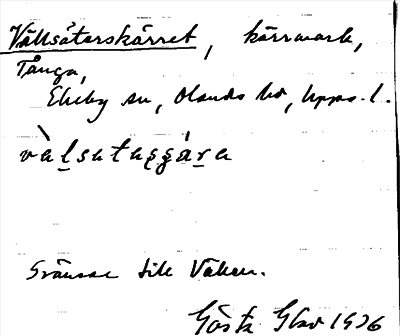 Vällsåterskärret, kärrmark,
Tånga,
Ekeby sn, Olands hd, Upps. l.
vàlsataşşára
Gränsar till Väken.
Gösta 1936